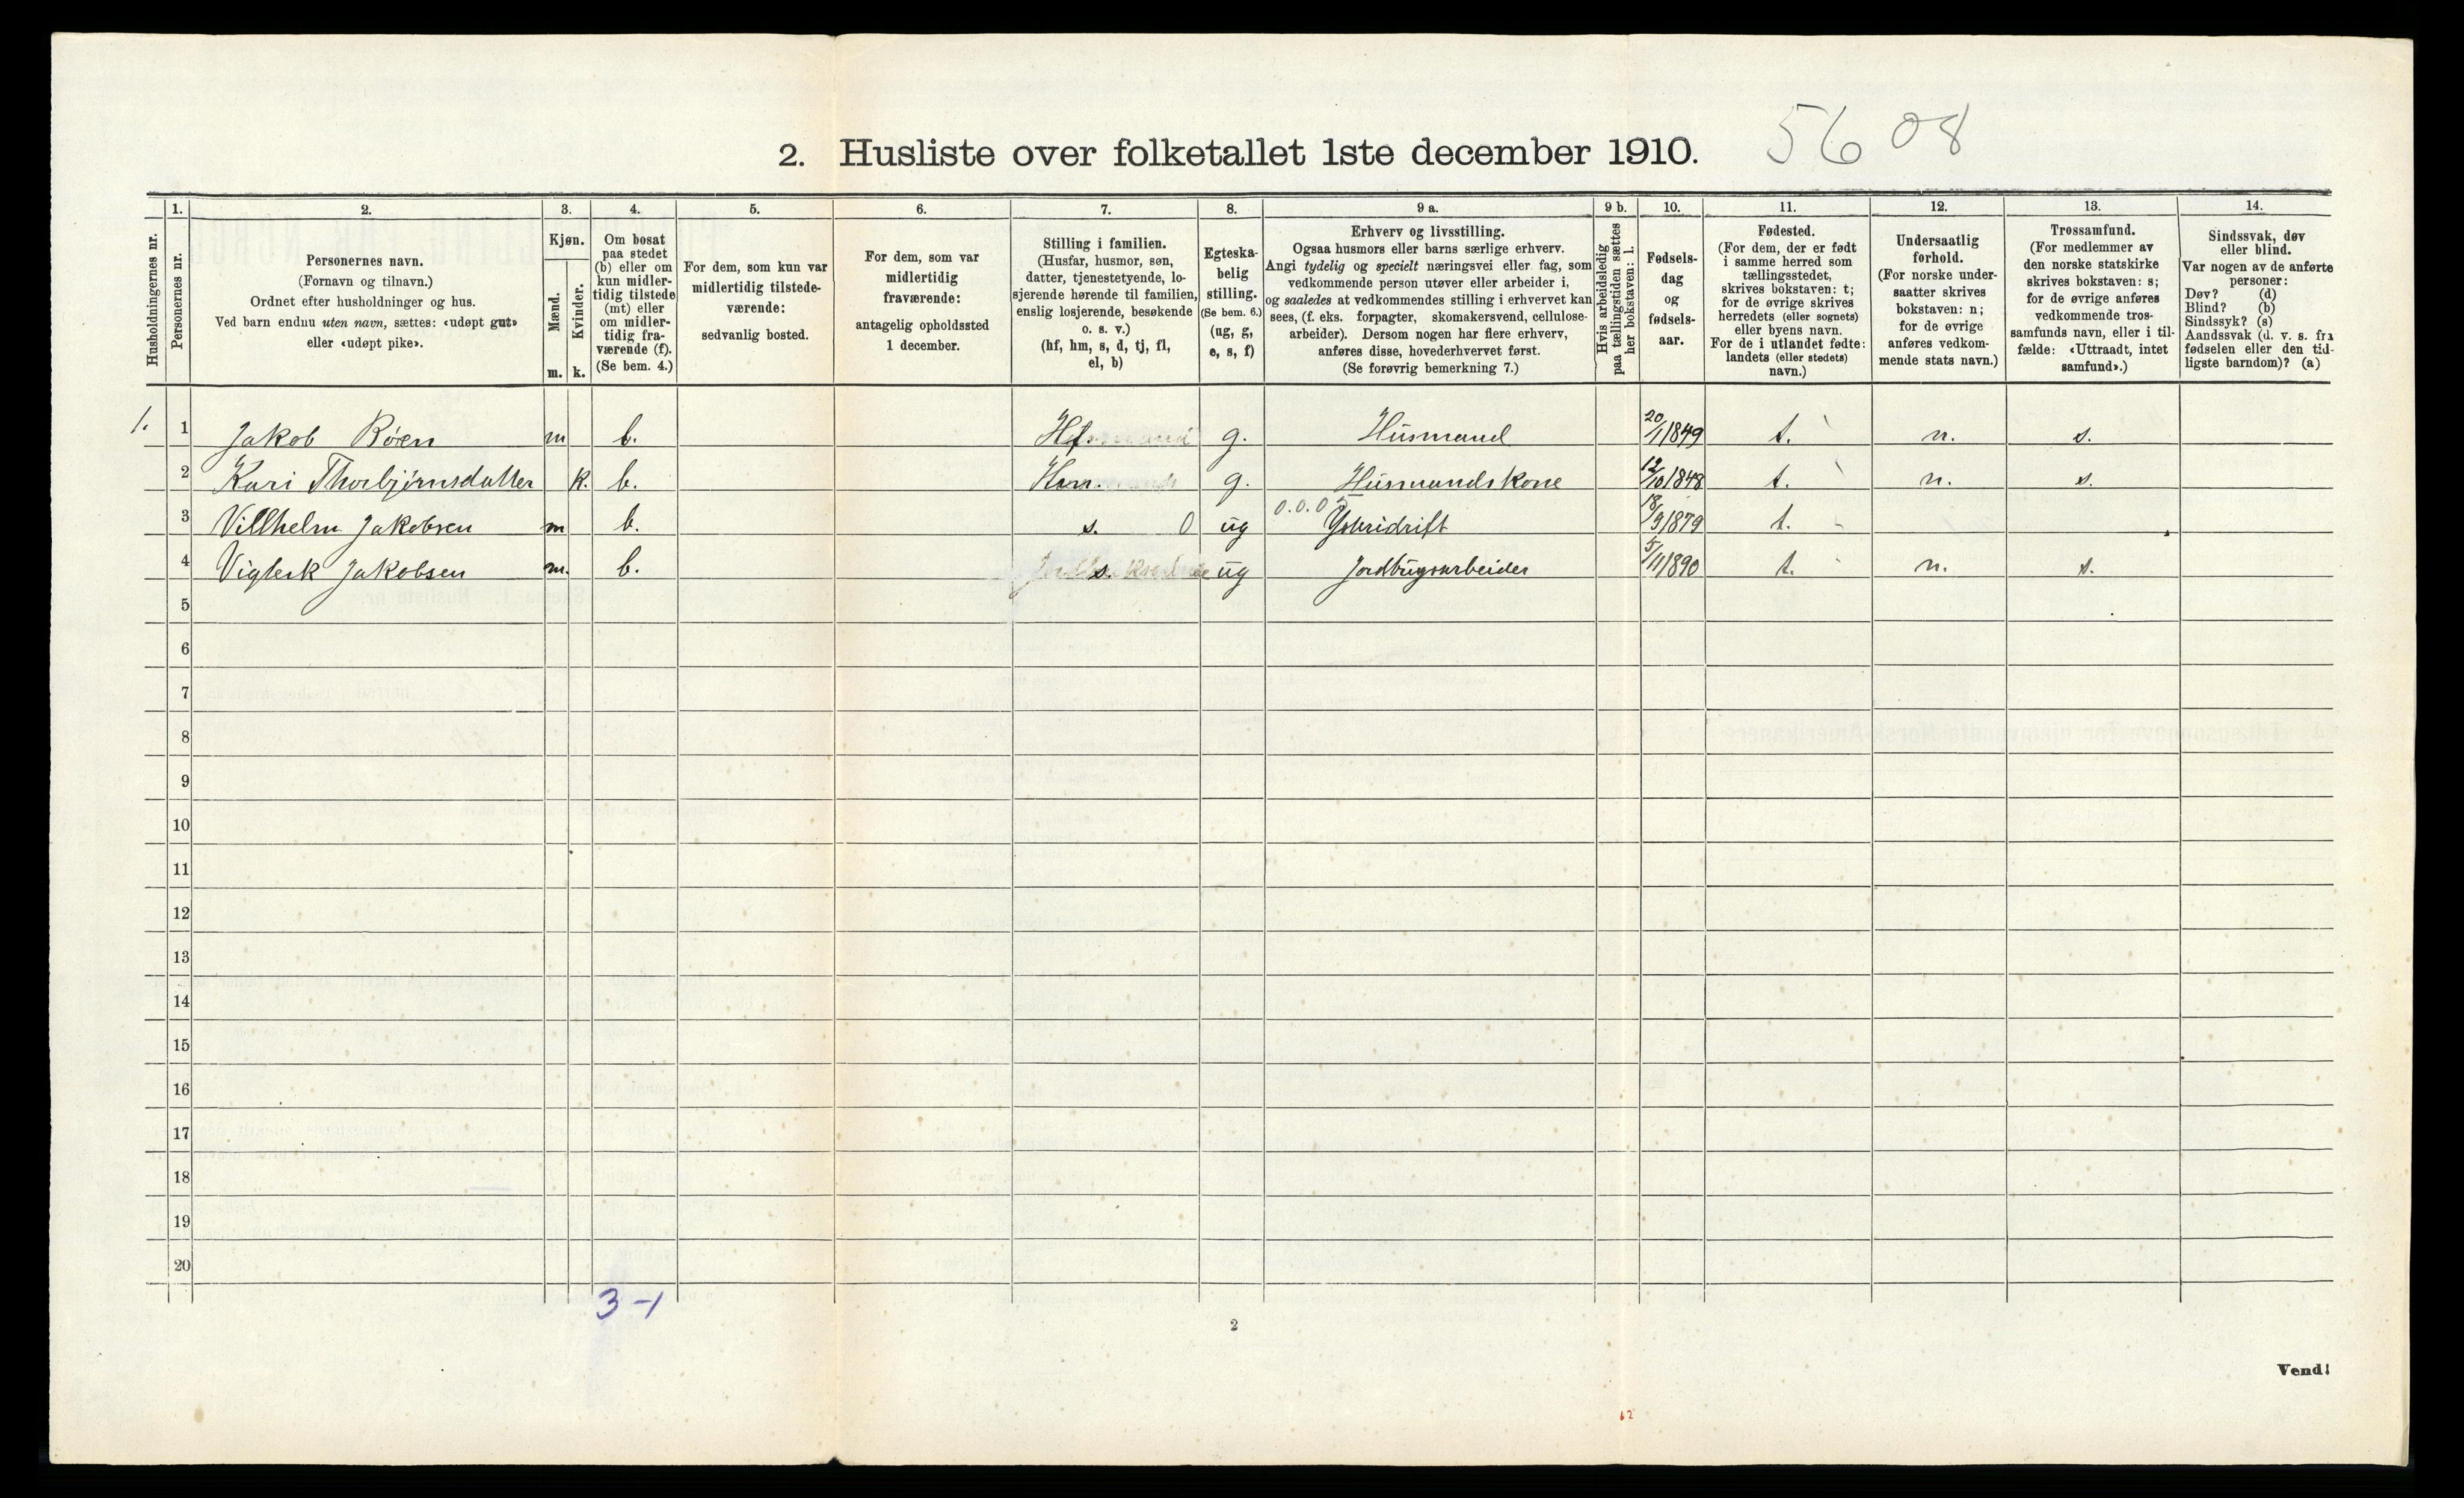 2. Husliste over folketallet 1ste december 1910. 5608
Husholdningernes nr.
1. Personernes nr.
2. Personernes navn.
(Fornavn og tilnavn.)
Ordnet efter husholdninger og hus.
Ved barn endnu uten navn, sættes: «udøpt gut»
eller «udøpt pike».
3. Kjøn.
Mænd. m.
Kvinder. k.
4. Om bosat
paa stedet
(b) eller om
kun midler-
tidig tilstede
(mt) eller
om midler-
tidig fra-
værende (f).
(Se bem. 4.)
5. For dem, som kun var
midlertidig tilstede-
værende:
sedvanlig bosted.
6. For dem, som var
midlertidig
fraværende:
antagelig opholdssted
1 december.
7. Stilling i familien.
(Husfar, husmor, søn,
datter, tjenestetyende, lo-
sjerende hørende til familien,
enslig losjerende, besøkende
o. s. v.)
(hf, hm, s, d, tj, fl,
el, b)
8. Egteska-
belig
stilling.
(Se bem. 6.)
(ug, g,
e, s, f)
9 a. Erhverv og livsstilling.
Ogsaa husmors eller barns særlige erhverv.
Angi tydelig og specielt næringsvei eller fag, som
vedkommende person utøver eller arbeider i,
og saaledes at vedkommendes stilling i erhvervet kan
sees, (f. eks. forpagter, skomakersvend, cellulose-
arbeider). Dersom nogen har flere erhverv,
anføres disse, hovederhvervet først.
(Se forøvrig bemerkning 7.)
9 b. Hvis arbeidsledig
paa tællingstiden sættes
her bokstaven: l.
10. Fødsels-
dag
og
fødsels-
aar.
11. Fødested.
(For dem, der er født
i samme herred som
tællingsstedet,
skrives bokstaven: t;
for de øvrige skrives
herredets (eller sognets)
eller byens navn.
For de i utlandet fødte:
landets (eller stedets)
navn.)
12. Undersaatlig
forhold.
(For norske under-
saatter skrives
bokstaven: n;
for de øvrige
anføres vedkom-
mende stats navn.)
13. Trossamfund.
(For medlemmer av
den norske statskirke
skrives bokstaven: s;
for de øvrige anføres
vedkommende tros-
samfunds navn, eller i til-
fælde: «Uttraadt, intet
samfund».)
14. Sindssvak, døv
eller blind.
Var nogen av de anførte
personer:
Døv? (d)
Blind? (b)
Sindssyk? (s)
Aandssvak (d. v. s. fra
fødselen eller den tid-
ligste barndom)? (a)
1. 1 Jakob Röen m b. Hf. g. Húsmand 20/1 1849 t. n. s.
2 Kari Thorbjörnsdatter k. b. Hm. g. Húsmandskone 12/10 1848 t. n. s.
3 Villhelm Jakobsen m b. s. 0 ug 0.0.05 18/9 1879 t.
4 Vigleik Jakobsen m. b. s. ug Jordbrugsarbeider 5/11 1890 t. n. s.
5
6
7
8
9
10
11
12
13
14
15
16
17
18
19
20
3-1
2
Vend!
62